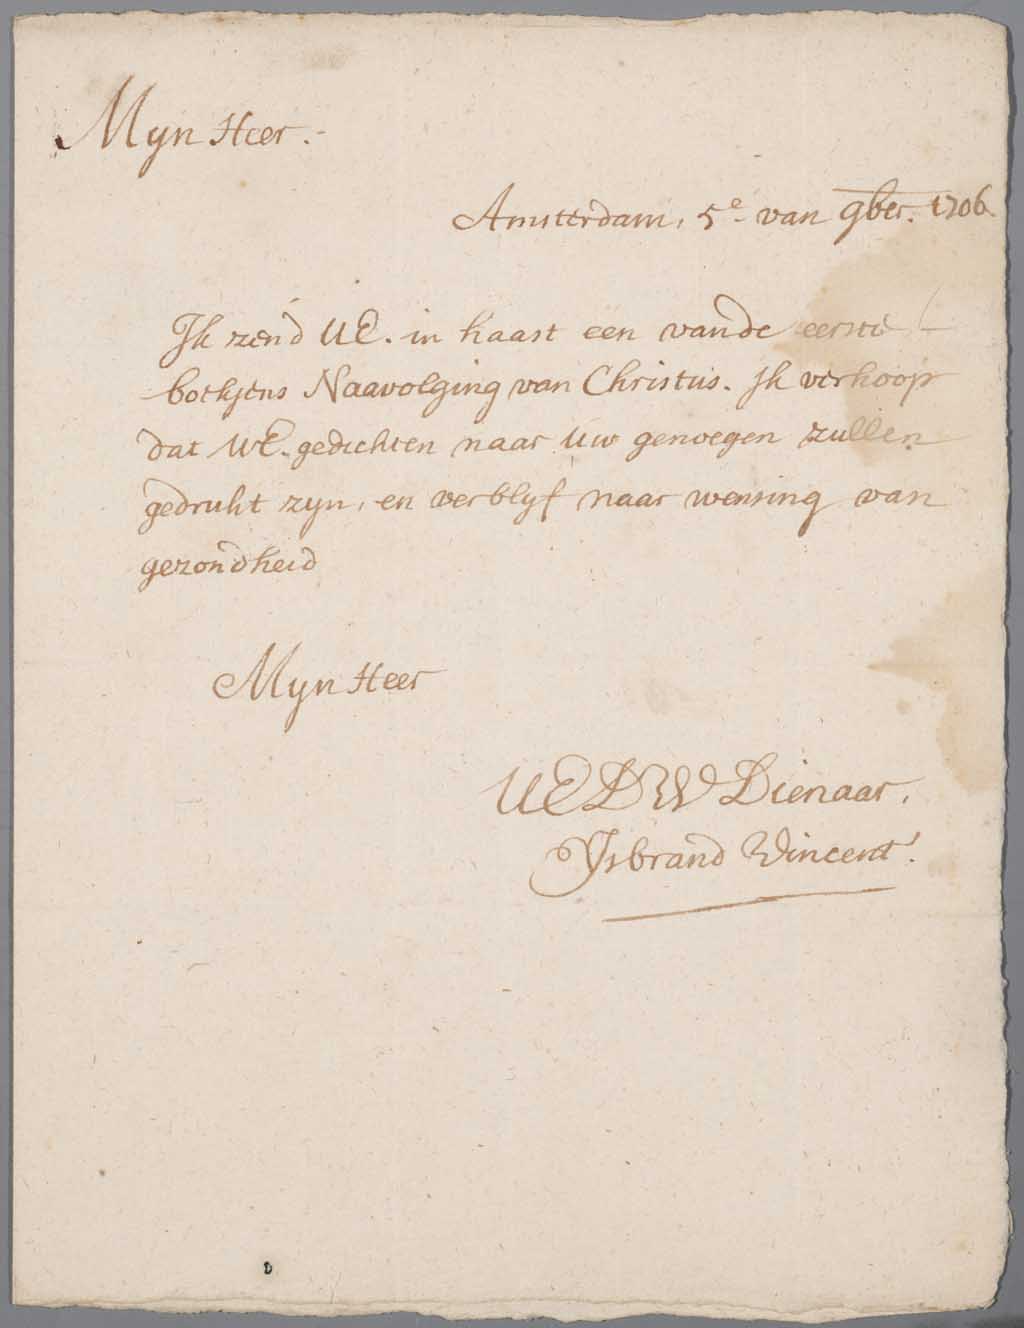 Myn Heer.
Amsterdam, 5e van 9ber. 1706.
Ik zend UE. in haast een vande eerste
boekjens Naavolging van Christus. Ik verhoop
dat UE. gedichten naar Uw genoegen zullen
gedrukt zyn, en verblyf naar wensing van
gezondheid
Myn Heer
UEDW Dienaar,
Ysbrand Vincent.